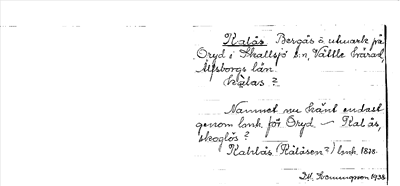 Kalås Bergås å utmark på
Öryd i Skallsjö s:n, Vättle härad,
Älfsborgs län.
Kålas?
Namnet nu känt endast
genom lmk för Öryd — Kalås,
skoglös?
(Kålåsen?) lmk. 1878.
1938